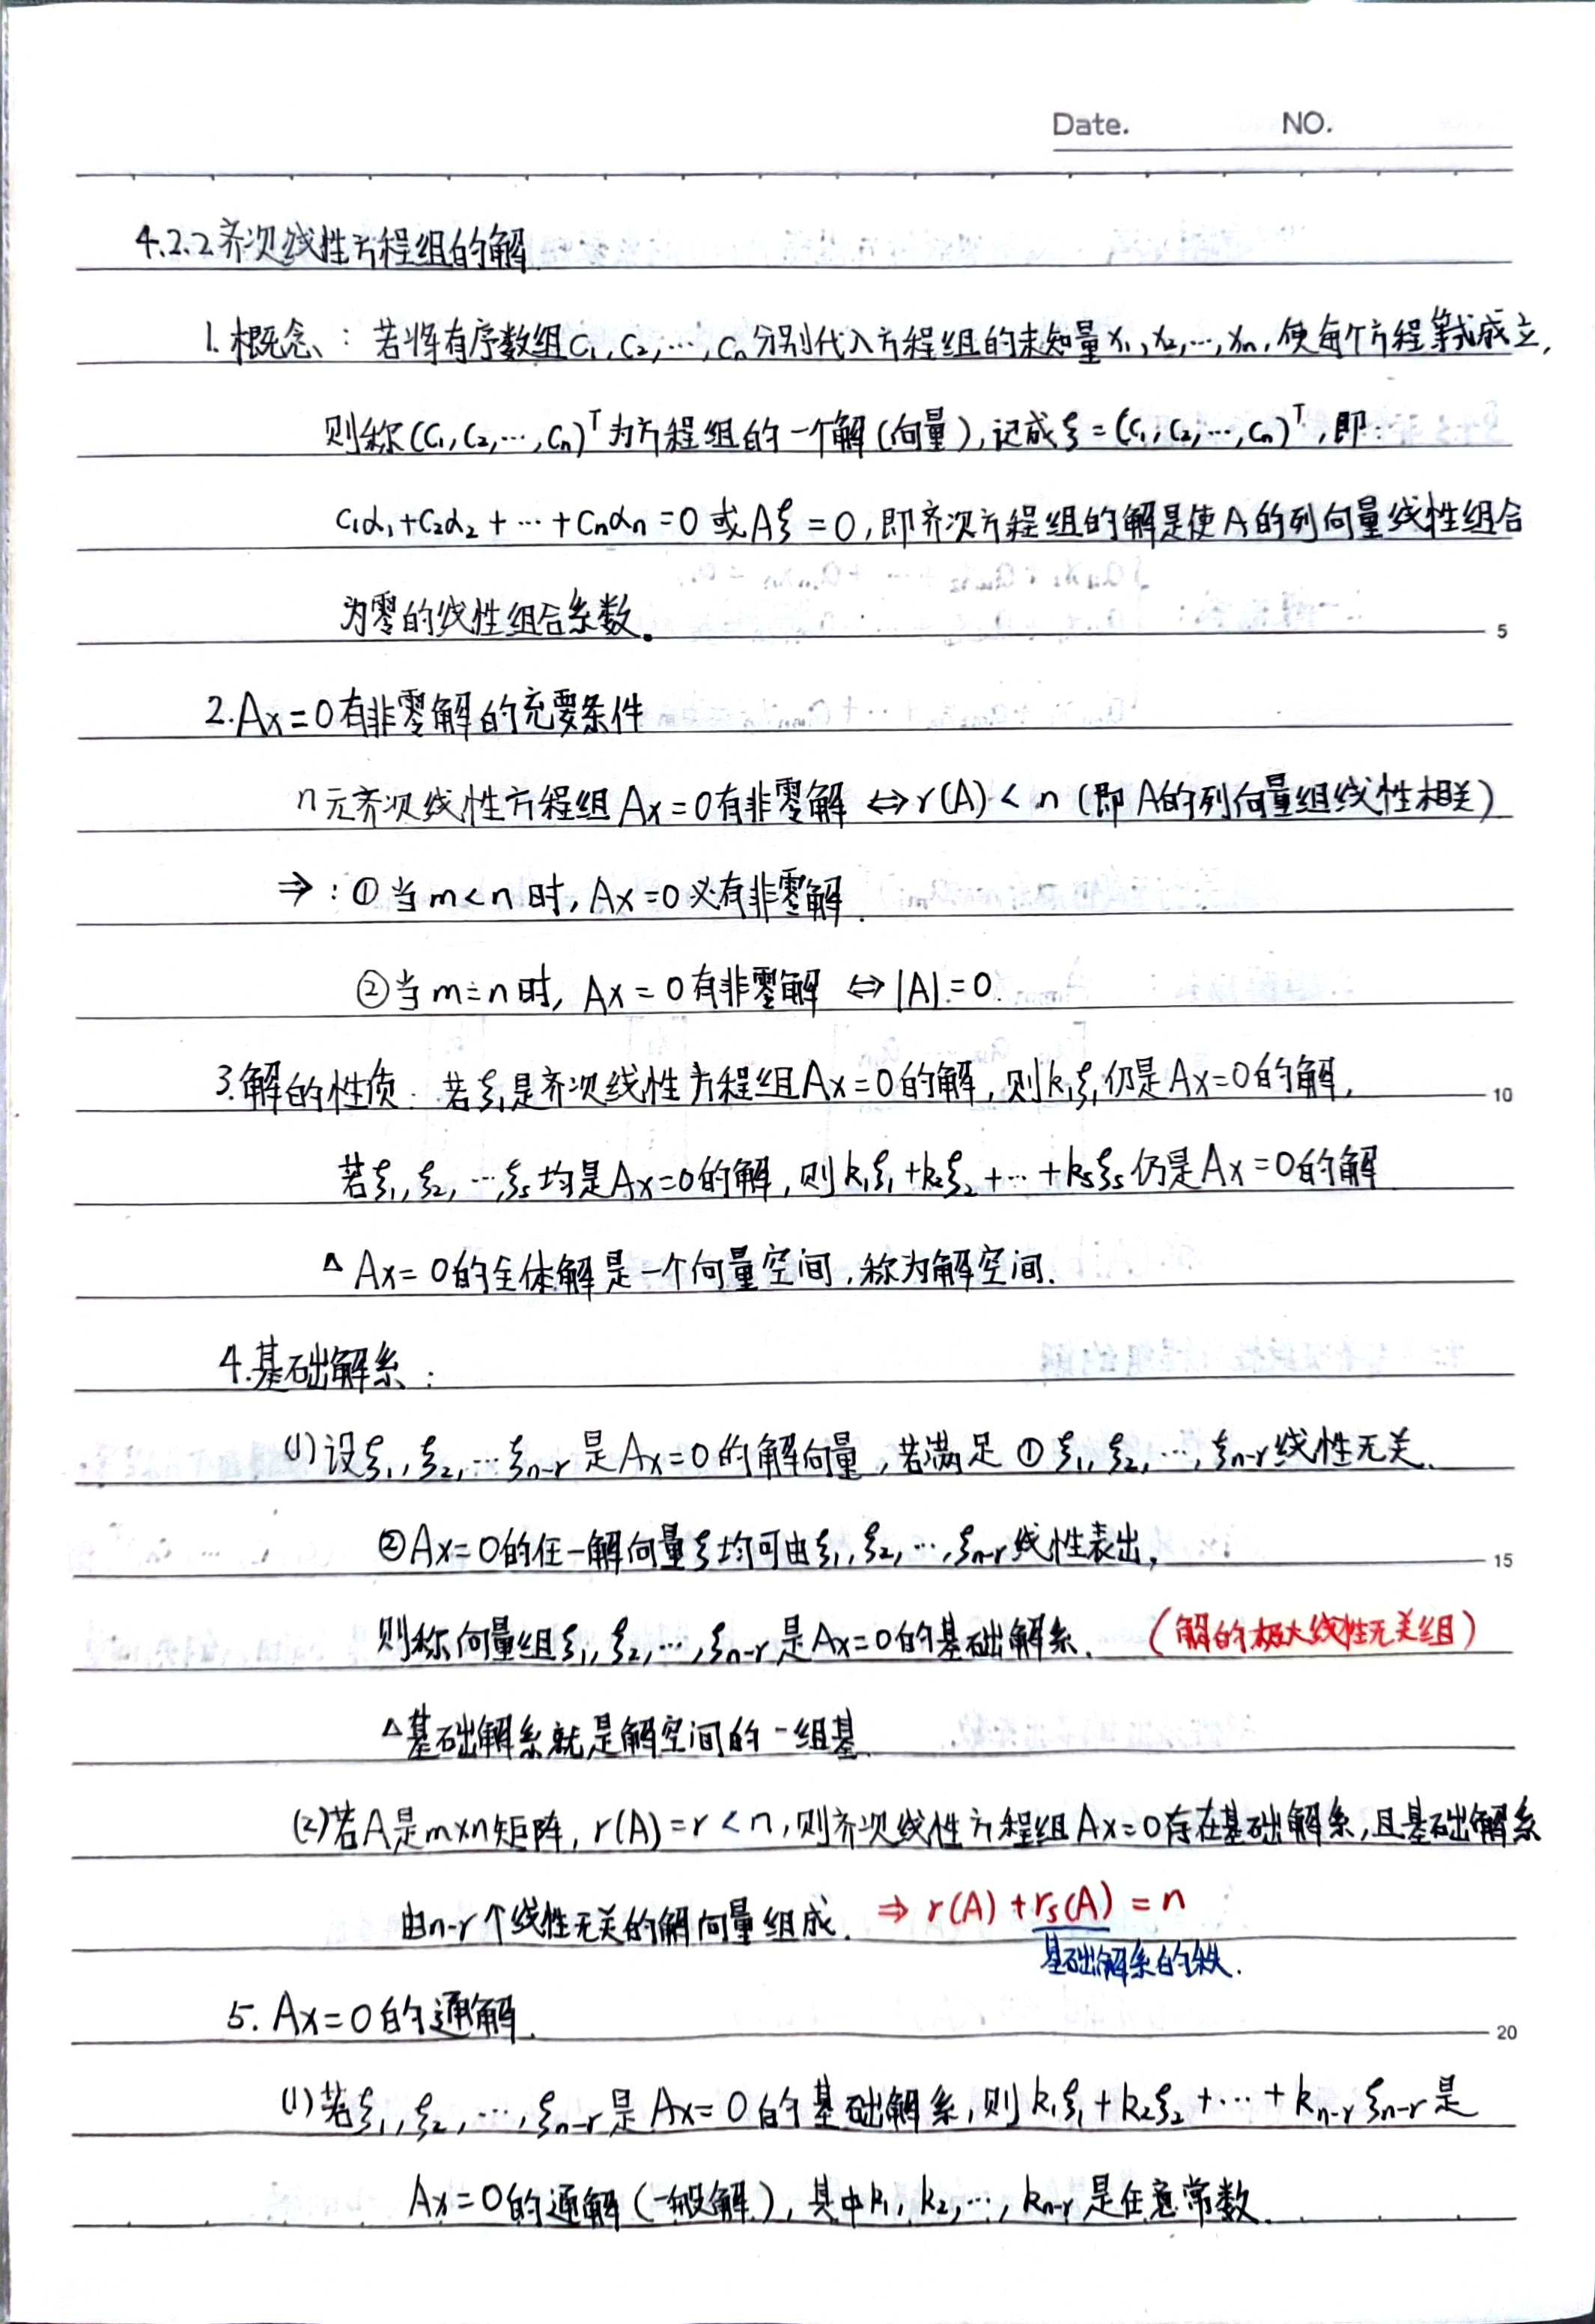 Date. NO.
4.2.2 齐次线性方程组的解
1. 概念：若将有序数组c₁, c₂, …, cₙ 分别代入方程组的未知量x₁, x₂, …, xₙ, 使每个方程等式成立,
则称(c₁, c₂, …, cₙ)ᵀ为方程组的一个解(向量), 记成ξ=(c₁, c₂, …, cₙ)ᵀ, 即:
c₁α₁+c₂α₂+…+cₙαₙ=0 或Aξ=0, 即齐次方程组的解是使A的列向量线性组合
为零的线性组合系数. 5
2. Ax=0有非零解的充要条件
n元齐次线性方程组Ax=0有非零解 ⇔ r(A) < n (即A的列向量组线性相关)
⇒: ①当m<n时, Ax=0必有非零解.
②当m=n时, Ax=0有非零解 ⇔ |A|=0.
3. 解的性质: 若ξ₁是齐次线性方程组Ax=0的解, 则k₁ξ₁仍是Ax=0的解, 10
若ξ₁, ξ₂, …, ξₛ均是Ax=0的解, 则k₁ξ₁+k₂ξ₂+…+kₛξₛ仍是Ax=0的解
△ Ax=0的全体解是一个向量空间, 称为解空间.
4. 基础解系:
(1) 设ξ₁, ξ₂, … ξₙ₋ᵣ 是Ax=0的解向量, 若满足 ①ξ₁, ξ₂, …, ξₙ₋ᵣ线性无关.
②Ax=0的任一解向量ξ均可由ξ₁, ξ₂, …, ξₙ₋ᵣ线性表出, 15
则称向量组ξ₁, ξ₂, …, ξₙ₋ᵣ是Ax=0的基础解系. (解的极大线性无关组)
△基础解系就是解空间的一组基.
(2) 若A是m×n矩阵, r(A)=r<n, 则齐次线性方程组Ax=0存在基础解系, 且基础解系
由n-r个线性无关的解向量组成. ⇒ r(A)+rₛ(A)=n
基础解系的秩.
5. Ax=0的通解. 20
(1) 若ξ₁, ξ₂, …, ξₙ₋ᵣ是Ax=0的基础解系, 则k₁ξ₁+k₂ξ₂+…+kₙ₋ᵣξₙ₋ᵣ是
Ax=0的通解(一般解), 其中k₁, k₂, …, kₙ₋ᵣ是任意常数.